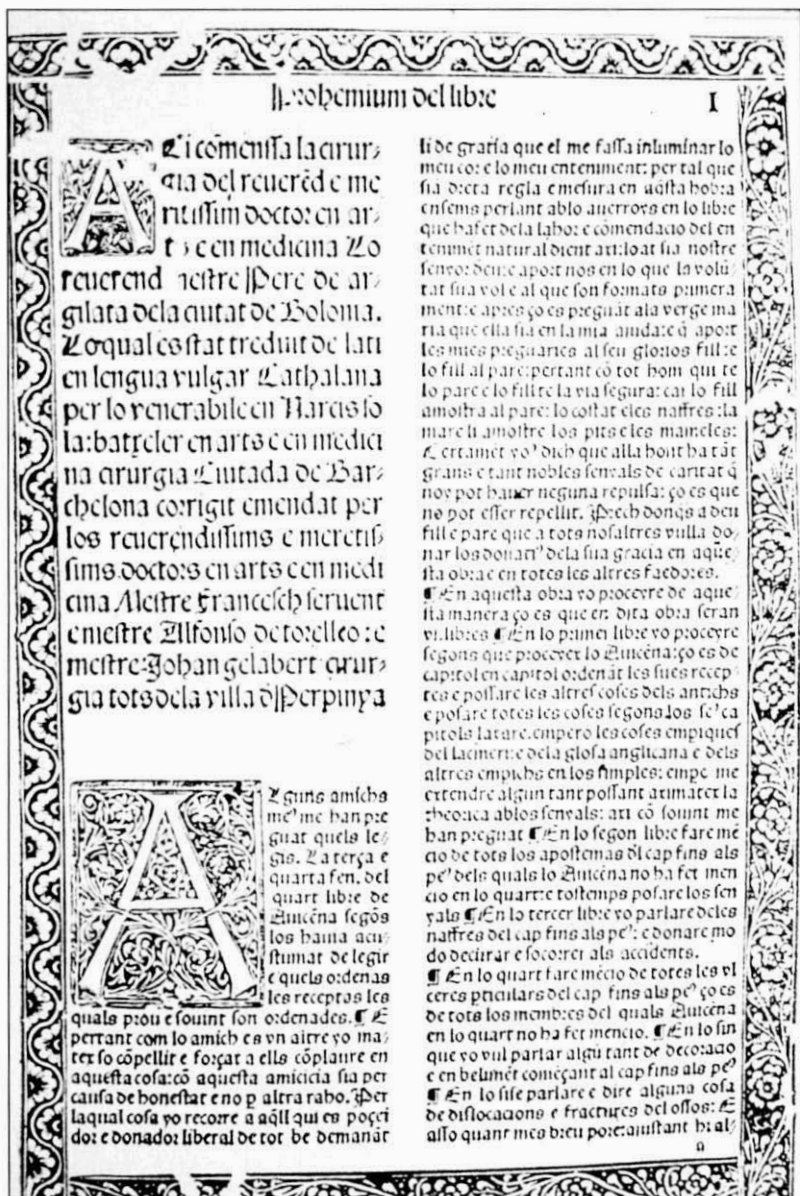 Prohemium del libre
I
Aci cōmensa la cirur
gia del reuerēd e me
ritissim doctor en ar
ts e en medicina Lo
reuerend mestre Pere de ar
gilata dela ciutat de Bolonia.
Lo qual es stat treduit de lati
en lengua vulgar Cathalana
per lo venerabile en Narcis so
la: batxeler en arts e en medici
na cirurgia Ciutada de Bar
chelona corrigit emendat per
los reuerendissims e meretis
sims doctors en arts e en medi
cina Mestre Francesch seruent
e mestre Alfonso de torelleo: e
mestre Johan gelabert cirur
gia tots dela villa d Perpinya
Alguns amichs
me' me han pre
guat quels le
gis. La terça e
quarta fen. del
quart libre de
Auicēna segōs
los hauia acu
stumat de legir
e quels ordenas
les receptas les
quals prou e souint son ordenades. ¶ E
pertant com lo amich es vn altre yo ma
tex so cōpellit e forçat a ells cōplaure en
aquesta cosa: cō aquesta amicicia sia per
causa de honestat e no p altra raho. Per
laqual cosa yo recorre a aq̄ll qui es poçei
dor e donador liberal de tot be demanāt
li de gracia que el me fassa inluminar lo
meu cor e lo meu enteniment: per tal que
sia dreta regla e mesura en aq̄sta hobra
ensems perlant ab lo auerroys en lo libre
que ha fet dela labor e comendacio del en
tenimēt natural dient axi: loat sia nostre
senyor deu: e aport nos en lo que la volū
tat sua vol e al que son formats primera
ment: e apres ço es preguāt ala verge ma
ria que ella sia en la mia aiuda: e q̄ aport
les mies preguaries al seu glorios fill: e
lo fill al pare: pertant cō tot hom qui te
lo pare e lo fill te la via segura: car lo fill
amostra al pare: lo costat e les naffres: la
mare li amostre los pits e les mameles:
E certamēt yo' dich que alla hont ha tāt
grans e tant nobles senyals de caritat q̄
noy pot hauer neguna repulsa: ço es que
no pot esser repellit. Prech donqs a deu
fill e pare que a tots nosaltres vulla do
nar los donatr' dela sua gracia en aq̄ue
sta obra e en totes les altres faedores.
¶ En aquesta obra yo proceyre de aque
sta manera ço es que en dita obra seran
vi. libres ¶ En lo primer libre yo proceyre
segons que proceyex lo Auicēna: ço es de
capitol en capitol ordenāt les sues recep
tes e possare les altres coses dels antichs
e posare totes les coses segons los se' ca
pitols latare. empero les coses empiques
del lacinert: e dela glosa anglicana e dels
altres empichs en los simples: empe me
extendre algun tant possant arimatex la
theorica ab los senyals: axi cō souint me
han preguat ¶ En lo segon libre fare mē
cio de tots los apostemas dl cap fins als
pe' dels quals lo Auicēna no ha fet men
cio en lo quart: e tostemps posare los sen
yals ¶ En lo tercer libre yo parlare deles
naffres del cap fins als pe': e donare mo
do de citrar e socorrer als accidents.
¶ En lo quart fare mēcio de totes les vl
ceres pticulars del cap fins als pe' ço es
de tots los membres del quals Auicēna
en lo quart no ha fet mencio. ¶ En lo sin
que yo vul parlar algū tant de decoracio
e en belimēt començant al cap fins als pe'
¶ En lo sise parlare e dire alguna cosa
de dislocacions e fractures del ossos: E
asso quant mes breu pore: aiustant hi al
a